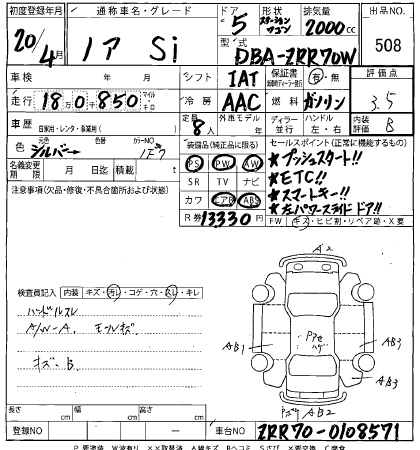 初度登録年月 通称車名・グレード ドア 形状 排気量 出品NO.
20/4月 ノア Si 5 ステーションワゴン 2000cc 508
型式 DBA-ZRR70W
車検 年 月 シフト IAT 保証書 有・無 評価点
走行 18万0千850 マイル キロ 冷房 AAC 燃料 ガソリン 3.5
車歴 自家用・レンタ・事業用( ) 定員 8人 外車モデル 年 ディーラー 並行 ハンドル 左・右 内装 B
色 シルバー 色替 カラーNo. 1F7
装備品(純正品に限る) セールスポイント(正常に機能するもの)
名義変更期限 月 日迄 積載 t
PS PW AW
★プッシュスタート!!
注意事項(欠品・修復・不具合箇所および状態)
SR TV ナビ
★ETC!!
カワ エアB ABS
★スマートキー!!
★左パワースライドドア!!
R券 13330円
FW キズ・ヒビ割・リペア跡・X要
検査員記入 内装 キズ・汚レ・コゲ・穴・スレ・キレ
ハンドルスレ
A/W-A モールキズ
キズ・B
A2
AB1
AB3
AB3
AB2
長さ cm 幅 cm 高さ cm
登録NO － 車台NO ZRR70-0108571
P要塗装 W波有り XX取替済 A線キズ Bヘコミ Sサビ X要交換 C腐食